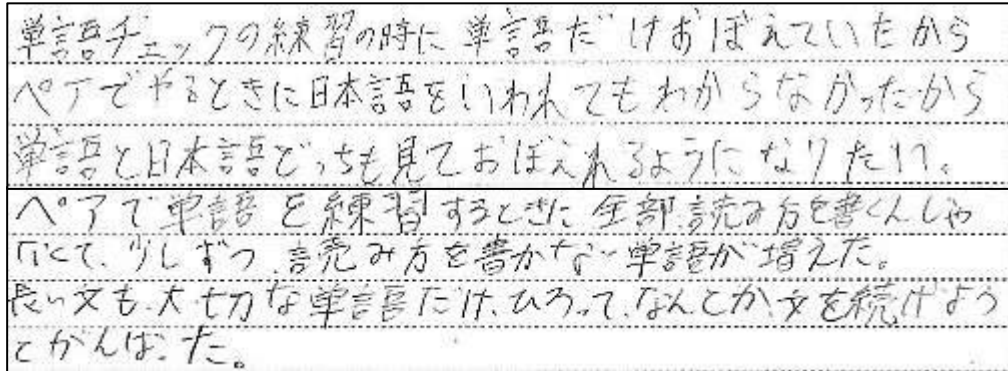 単語チェックの練習の時に単語だけおぼえていたから
ペアでやるときに日本語をいわれてもわからなかったから
単語と日本語どっちも見ておぼえれるようになりたい。
ペアで単語を練習するときに全部読み方を書くんじゃ
なくて、少しずつ読み方を書かない単語が増えた。
長い文も、大切な単語だけ、ひろって、なんとか、文を続けよう
とがんばった。